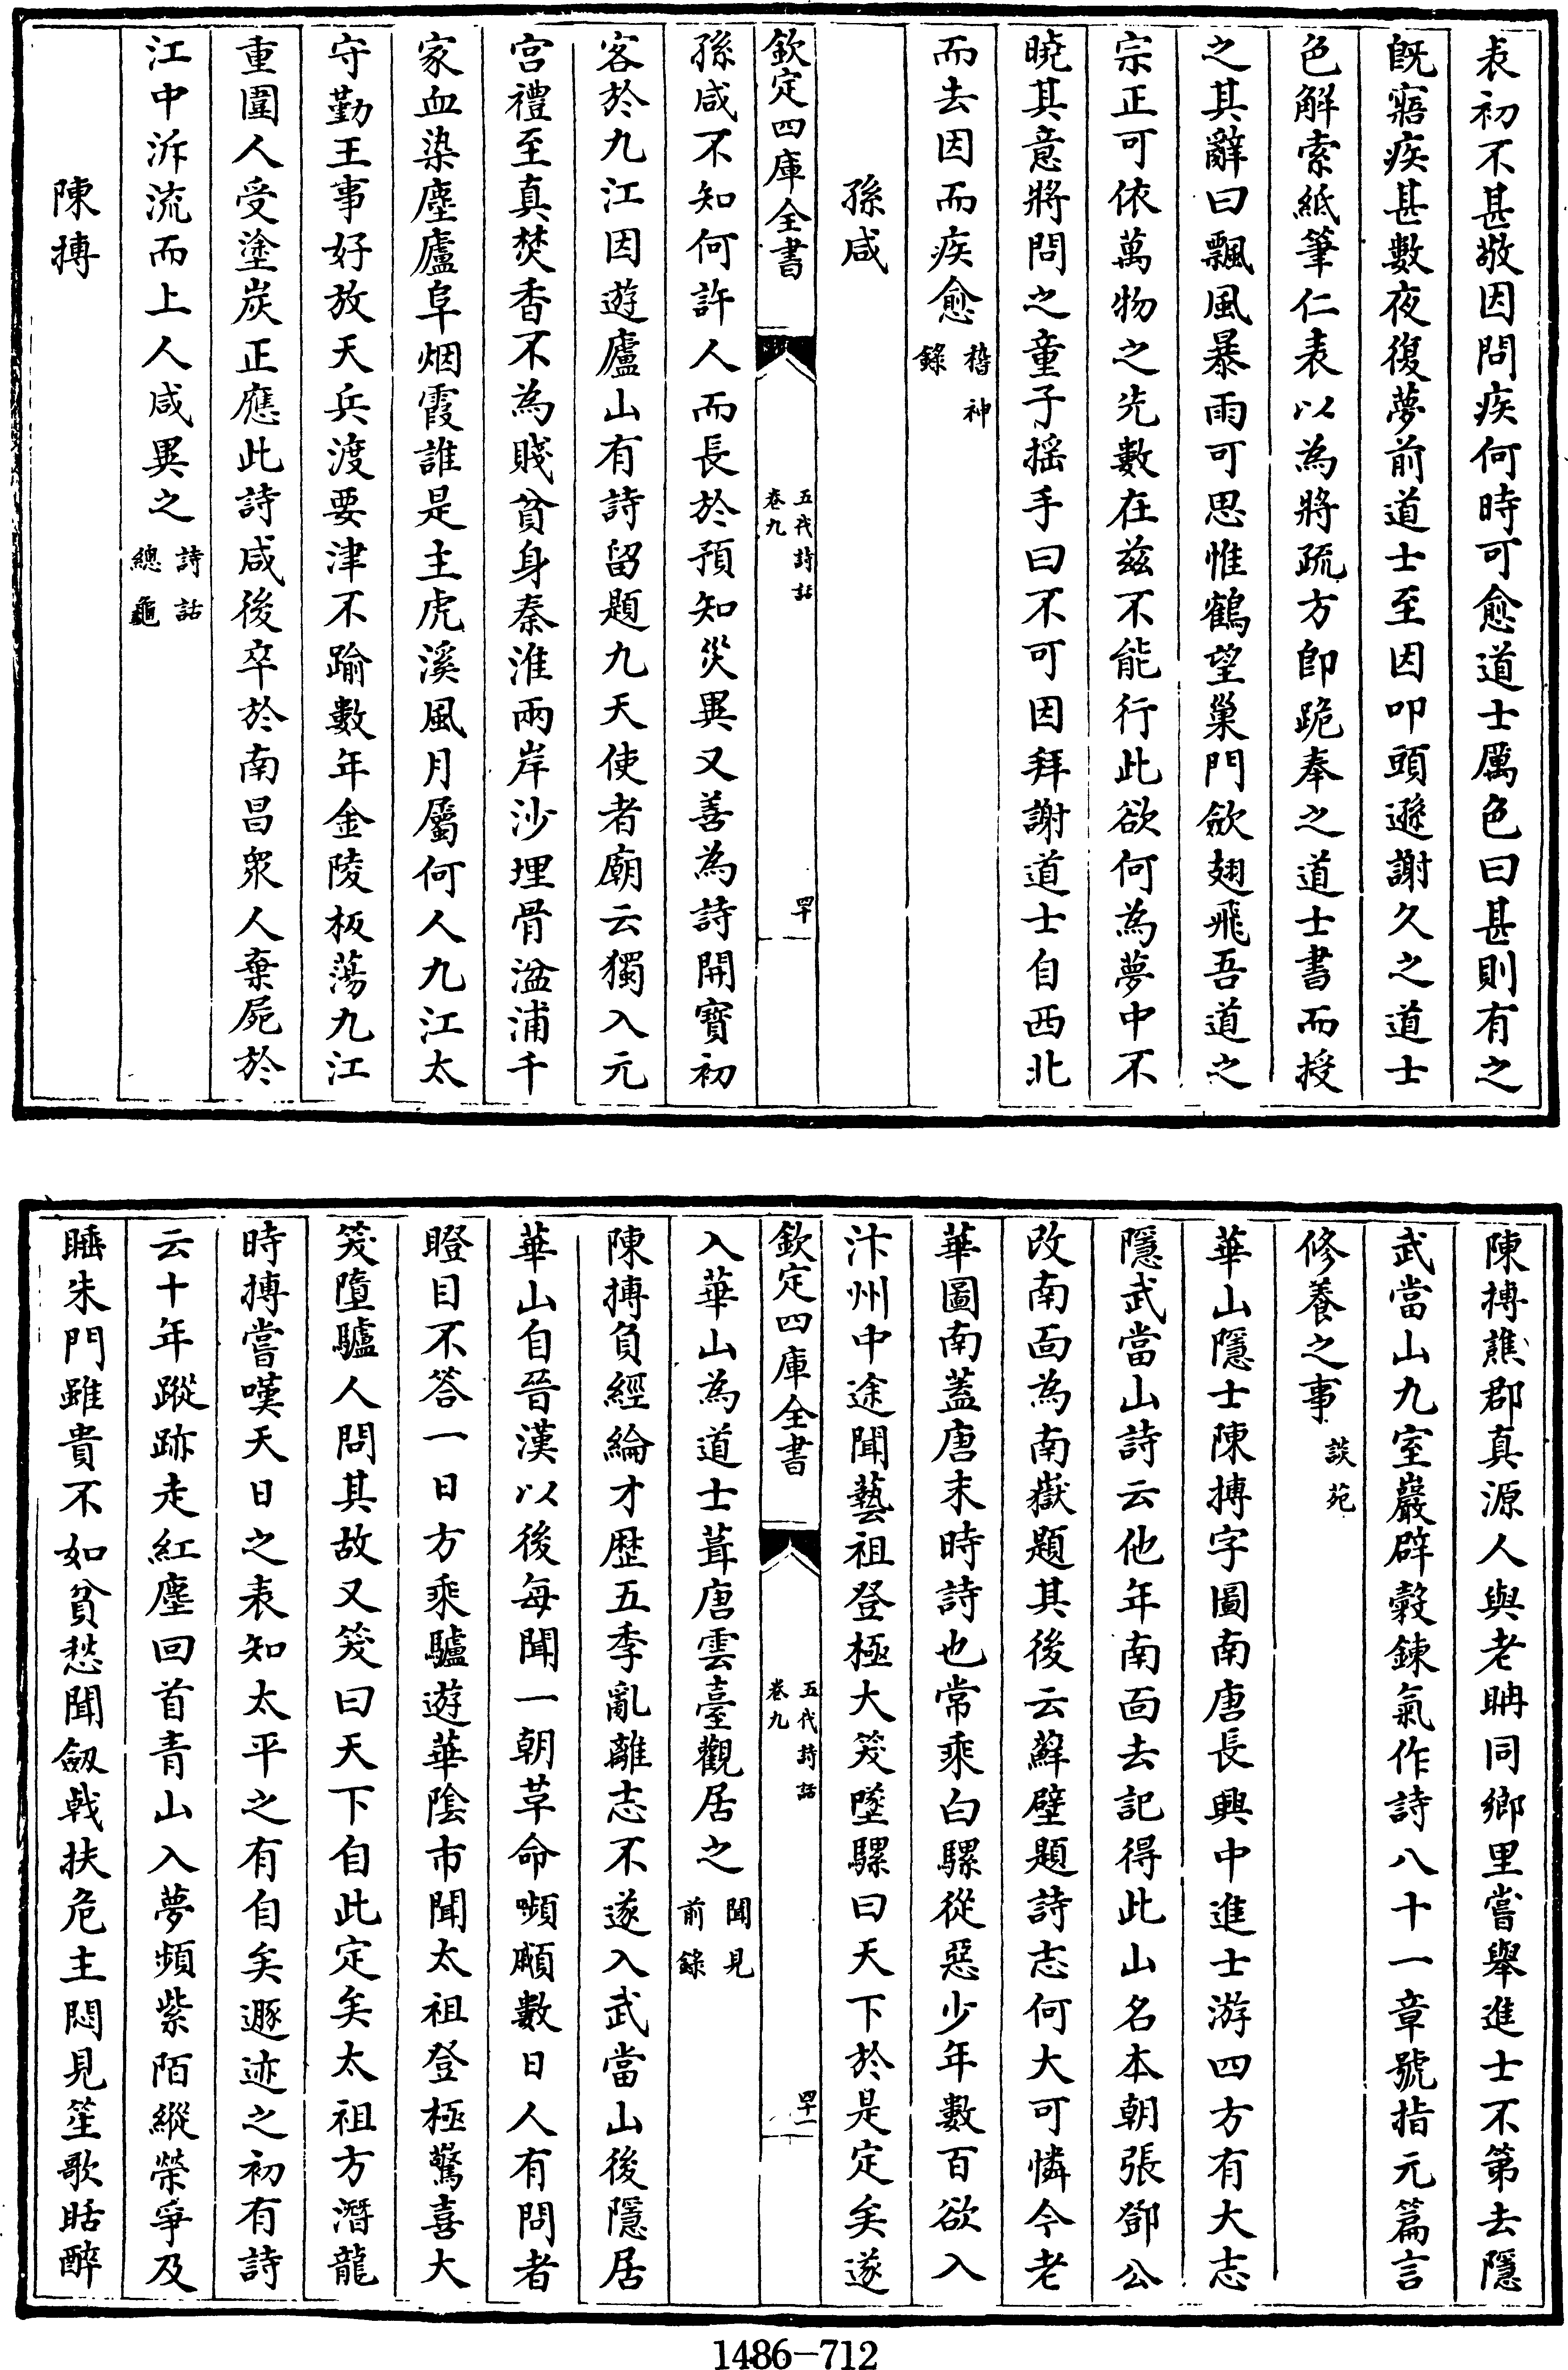 表初不甚敬因問疾何時可愈道士厲色曰甚則有之
旣寤疾甚數夜復夢前道士至因叩頭遜謝久之道士
色解索紙筆仁表以為將疏方即跪奉之道士書而授
之其辭曰飄風暴雨可思惟鶴望巢門斂翅飛吾道之
宗正可依萬物之先數在兹不能行此欲何為夢中不
曉其意將問之童子搖手曰不可因拜謝道士自西北
而去因而疾愈稽神錄
孫咸
欽定四庫全書 五代詩話 卷九 四十
孫咸不知何許人而長於預知災異又善為詩開寶初
客於九江因遊廬山有詩留題九天使者廟云獨入元
宫禮至真焚香不為賤貧身秦淮兩岸沙埋骨湓浦千
家血染塵廬阜烟霞誰是主虎溪風月屬何人九江太
守勤王事好放天兵渡要津不踰數年金陵板蕩九江
重圍人受塗炭正應此詩咸後卒於南昌衆人棄屍於
江中泝流而上人咸異之詩話總龜
陳摶
陳摶譙郡真源人與老聃同鄉里嘗舉進士不第去隱
武當山九室巖辟穀鍊氣作詩八十一章號指元篇言
修養之事談苑
華山隱士陳摶字圖南唐長興中進士游四方有大志
隱武當山詩云他年南面去記得此山名本朝張鄧公
改南面為南嶽題其後云蘚壁題詩志何大可憐今老
華圖南蓋唐末時詩也常乘白騾從惡少年數百欲入
汴州中途聞藝祖登極大笑墜騾曰天下於是定矣遂
欽定四庫全書 五代詩話 卷九 四十一
入華山為道士葺唐雲臺觀居之聞見前錄
陳摶負經綸才歷五季亂離志不遂入武當山後隱居
華山自晉漢以後每聞一朝革命嚬顣數日人有問者
瞪目不答一日方乘驢遊華陰市聞太祖登極驚喜大
笑墮驢人問其故又笑曰天下自此定矣太祖方潛龍
時摶嘗嘆天日之表知太平之有自矣遯迹之初有詩
云十年蹤跡走紅塵回首青山入夢頻紫陌縱榮爭及
睡朱門雖貴不如貧愁聞劒戟扶危主悶見笙歌聒醉
1486-712